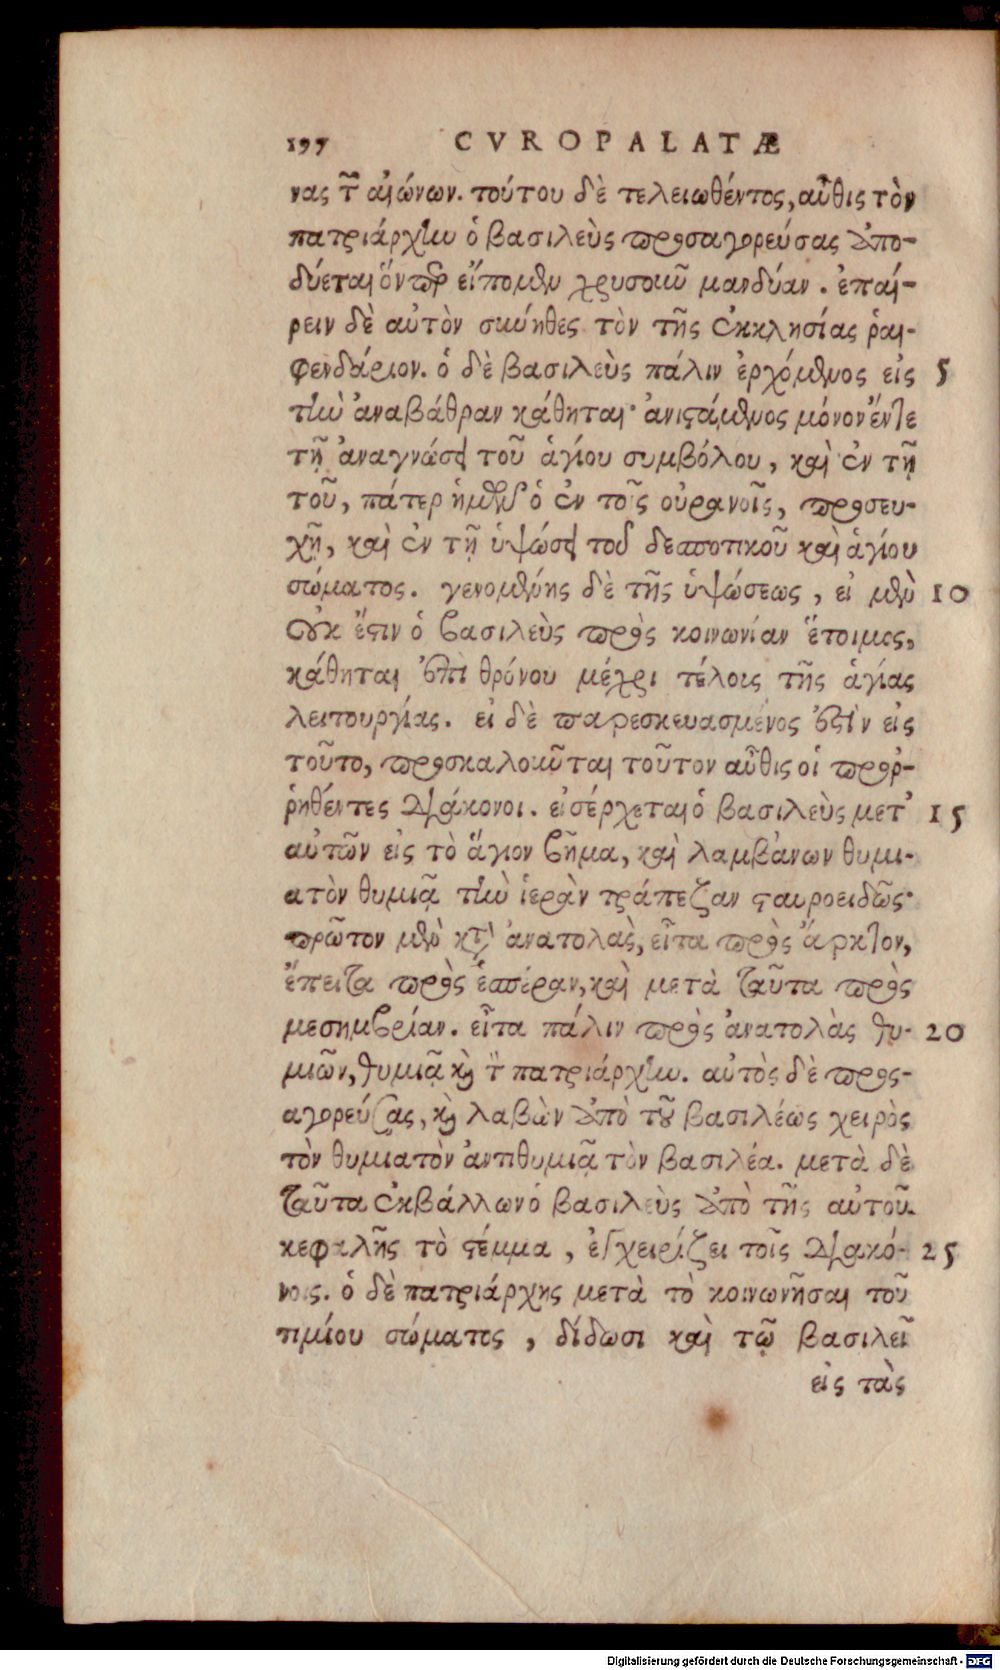 197 CVROPALATÆ
νας τ͂ αἰώνων. τούτου δὲ τελειωθέντος, αὖθις τὸν
πατριάρχην ὁ βασιλεὺς προσαγορεύσας ἀπο-
δύεται ὅνπερ εἴπομεν χρυσοῦν μανδύαν. ἐπαί-
ρειν δὲ αὐτὸν σύνηθες τὸν τῆς ἐκκλησίας ῥαι-
φενδάριον. ὁ δὲ βασιλεὺς πάλιν ἐρχόμενος εἰς 5
τὴν ἀναβάθραν κάθηται· ἀνιστάμενος μόνον ἔντε
τῇ ἀναγνώσει τοῦ ἁγίου συμβόλου, καὶ ἐν τῇ
τοῦ, πάτερ ἡμῶν ὁ ἐν τοῖς οὐρανοῖς, προσευ-
χῇ, καὶ ἐν τῇ ὑψώσει τοῦ δεσποτικοῦ καὶ ἁγίου
σώματος. γενομένης δὲ τῆς ὑψώσεως, εἰ μὲν 10
οὐκ ἔστιν ὁ βασιλεὺς πρὸς κοινωνίαν ἕτοιμος,
κάθηται ἐπὶ θρόνου μέχρι τέλους τῆς ἁγίας
λειτουργίας. εἰ δὲ παρεσκευασμένος ἐστὶν εἰς
τοῦτο, προσκαλοῦνται τοῦτον αὖθις οἱ προῤ-
ῥηθέντες διάκονοι. εἰσέρχεται ὁ βασιλεὺς μετ’ 15
αὐτῶν εἰς τὸ ἅγιον βῆμα, καὶ λαμβάνων θυμι-
ατὸν θυμιᾷ τὴν ἱερὰν τράπεζαν σταυροειδῶς·
πρῶτον μὲν κατ’ ἀνατολὰς, εἶτα πρὸς ἄρκτον,
ἔπειτα πρὸς ἑσπέραν, καὶ μετὰ ταῦτα πρὸς
μεσημβρίαν. εἶτα πάλιν πρὸς ἀνατολὰς θυ- 20
μιῶν, θυμιᾷ καὶ τ̀ πατριάρχην. αὐτὸς δὲ προς-
αγορεύσας, καὶ λαβὼν ἀπὸ τοῦ βασιλέως χειρὸς
τὸν θυμιατὸν ἀντιθυμιᾷ τὸν βασιλέα. μετὰ δὲ
ταῦτα ἐκβάλλων ὁ βασιλεὺς ἀπὸ τῆς αὐτοῦ
κεφαλῆς τὸ στέμμα, ἐγχειρίζει τοῖς διακό- 25
νοις. ὁ δὲ πατριάρχης μετὰ τὸ κοινωνῆσαι τοῦ
τιμίου σώματος, δίδωσι καὶ τῷ βασιλεῖ
εἰς τὰς
Digitalisierung gefördert durch die Deutsche Forschungsgemeinschaft - DFG